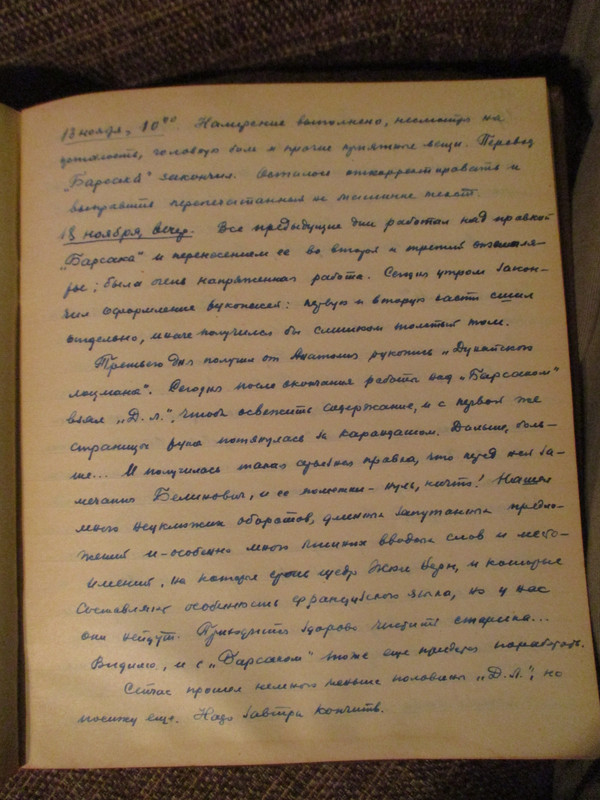 13 ноября, 10⁴⁰ Намерение выполнено, несмотря на
усталость, головную боль и прочие приятные вещи. Перевод
"Барсака" закончил. Осталось откорректировать и
выправить перепечатанный на машинке текст.
18 ноября, вечер. Все предыдущие дни работал над правкой
"Барсака" и перенесением ее во второй и третий экземпля-
ры; была очень напряженная работа. Сегодня утром закон-
чил оформление рукописей: первую и вторую части сшил
отдельно, иначе получился бы слишком толстый том.
Третьего дня получил от Анатолия рукопись "Дунайского
лоцмана". Сегодня после окончания работы над "Барсаком"
взял "Д.Л.", чтобы освежить содержание, и с первой же
страницы рука потянулась за карандашом. Дальше, боль-
ше... И получилась такая правка, что перед ней за-
мечания и ее пометки - нуль, ничто! Нашел
много неуклюжих оборотов, длинных запутанных предло-
жений и - особенно много лишних вводных слов и место-
имений, на которые столь щедр Жюль Верн, и которые
составляют особенность французского языка, но у нас
они нейдут. Приходится здорово чистить старика...
Видимо, и с "Барсаком" тоже еще придется поработать.
Сейчас прошел немного меньше половины "Д.Л.", но
посижу еще. Надо завтра кончить.